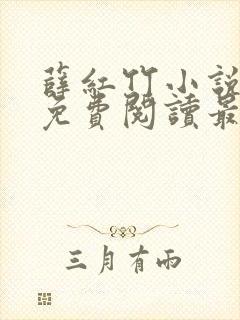 薛紅竹小說
免費閱讀最
三月有雨